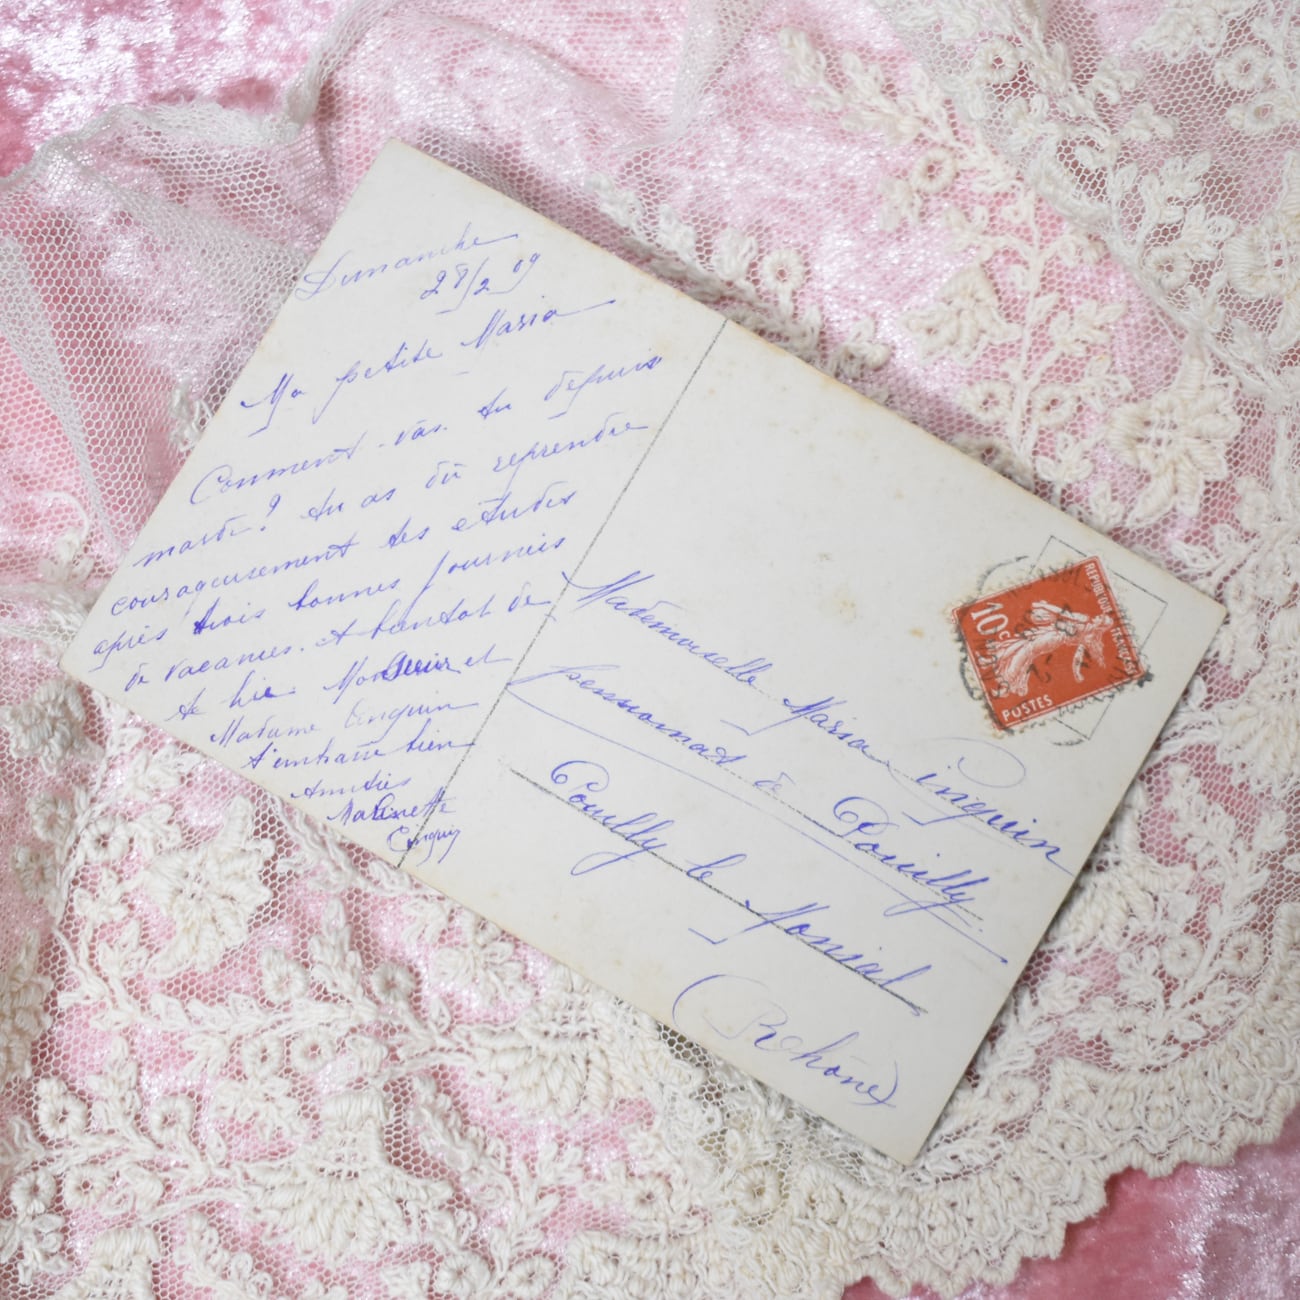 Dimanche
28/2 09
Ma petite Maria
Comment vas tu depuis
mardi? tu as dû reprendre
courageusement tes études
après trois bonnes journées
de vacances. et bientot de
te lire. Monsieur et
Madame Cinquin
t'embrasse bien
Amitiés
Cinquin
Mademoiselle Maria Cinquin
pensionnat de Pouilly
Pouilly le Monial
(Rhône)
REPUBLIQUE FRANÇAISE
10c
POSTES